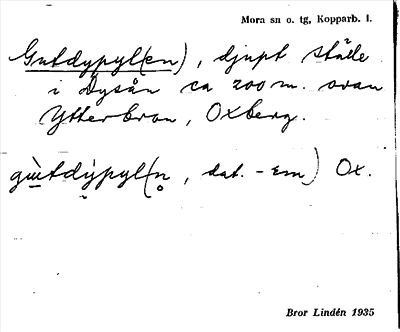 Mora sn o. tg, Kopparb. l.
Gutdypyl(en), djupt ställe
i Dysån ca 200 m. ovan
Ytterbron, Oxberg.
gùtdýpyl(n̥, dat. -em) Ox.
Bror Lindén 1935